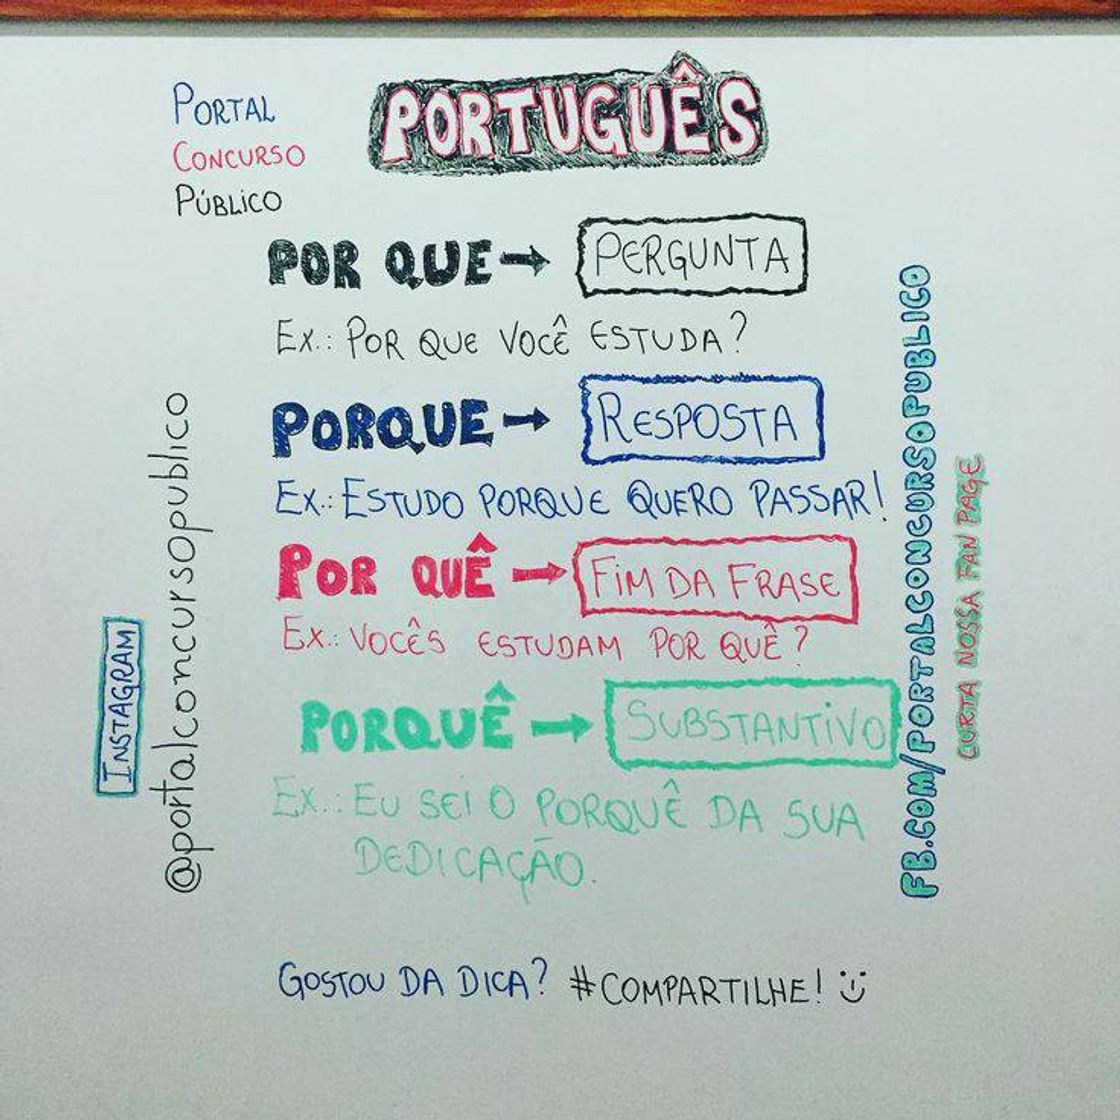 PORTAL
CONCURSO
PÚBLICO
PORTUGUÊS
POR QUE → PERGUNTA
EX.: POR QUE VOCÊ ESTUDA?
PORQUE → RESPOSTA
EX.: ESTUDO PORQUE QUERO PASSAR!
POR QUÊ → FIM DA FRASE
EX.: VOCÊS ESTUDAM POR QUÊ?
PORQUÊ → SUBSTANTIVO
EX.: EU SEI O PORQUÊ DA SUA
DEDICAÇÃO.
GOSTOU DA DICA? #COMPARTILHE! :)
INSTAGRAM
@portalconcursopublico
FB.COM/PORTALCONCURSOPUBLICO
CURTA NOSSA FAN PAGE